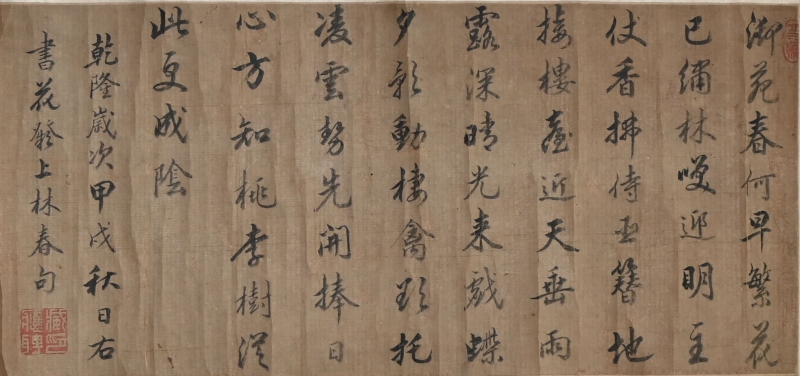 御苑春何早繁花
已繡林咲迎明主
仗香拂侍臣簪地
接樓臺近天垂雨
露深晴光来戯蝶
夕影動棲禽欲托
凌雲勢先開捧日
心方知桃李樹從
此更成陰
乾隆歲次甲戌秋日右
書花發上林春句